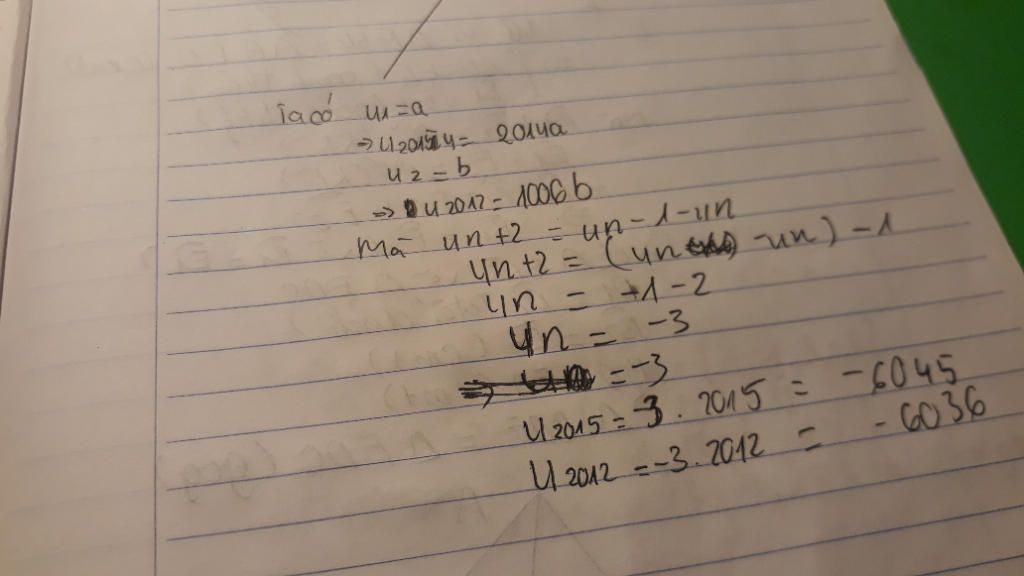 Ta có u1=a
⇒ u2014= 2014a
u2=b
⇒ u2012=1006b
Mà un+2 = un-1-un
un+2 = (un -un) -1
un = -1-2
un = -3
=-3
u2015=-3.2015 = -6045
u2012=-3.2012 = -6036